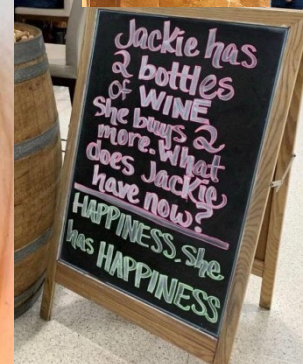 Jackie has
2 bottles
OF WINE
She buys 2
more. What
does Jackie
have now?
HAPPINESS. She
has HAPPINESS